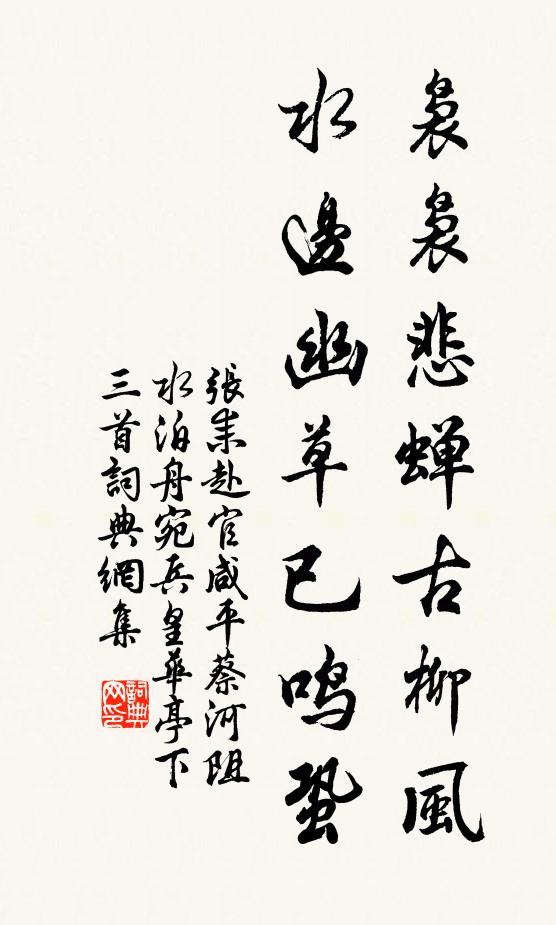 裊裊悲蝉古柳風
水邊幽草已鳴蛩
張耒赴官咸平蔡河阻
水泊舟宛丘皇華亭下
三首詞典網集
詞典网印